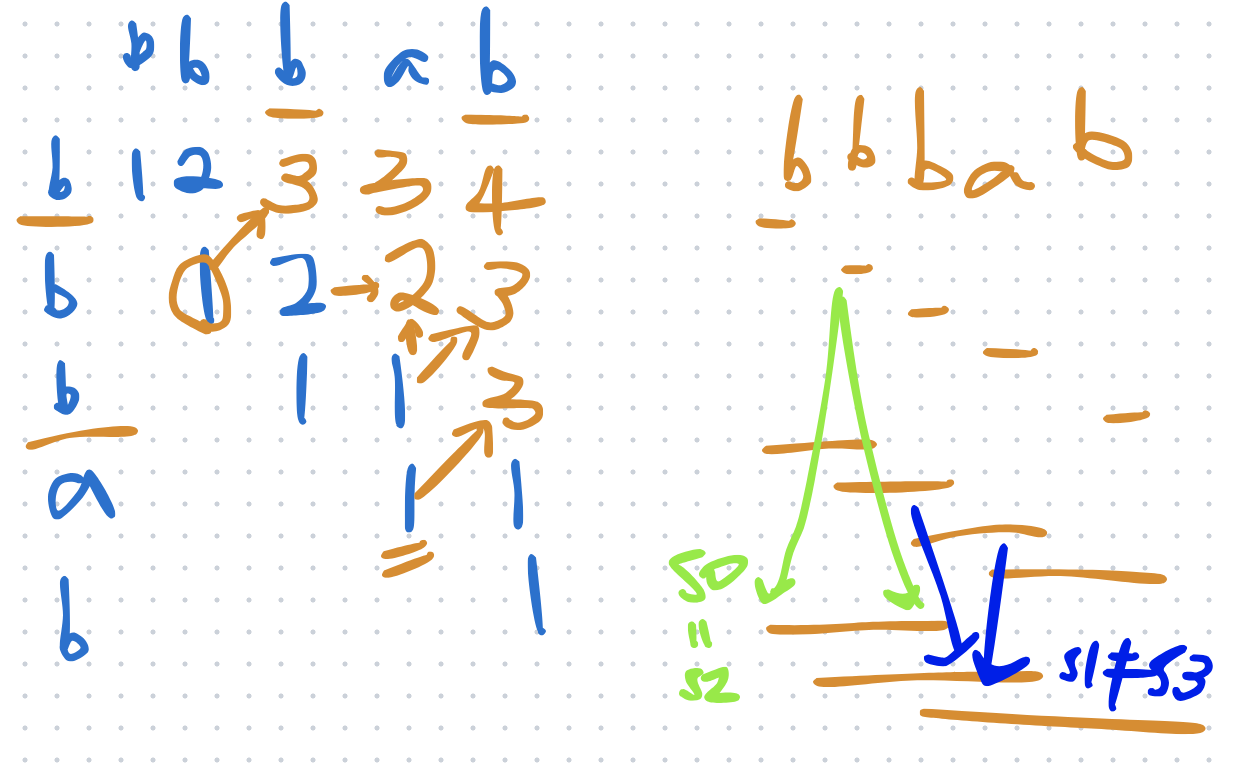 b b b a b
b 1 2 3 3 4
b 1 2 2 3
b 1 1 3
a 1 1
b 1
b b b a b
s0
=
s2
s1≠s3